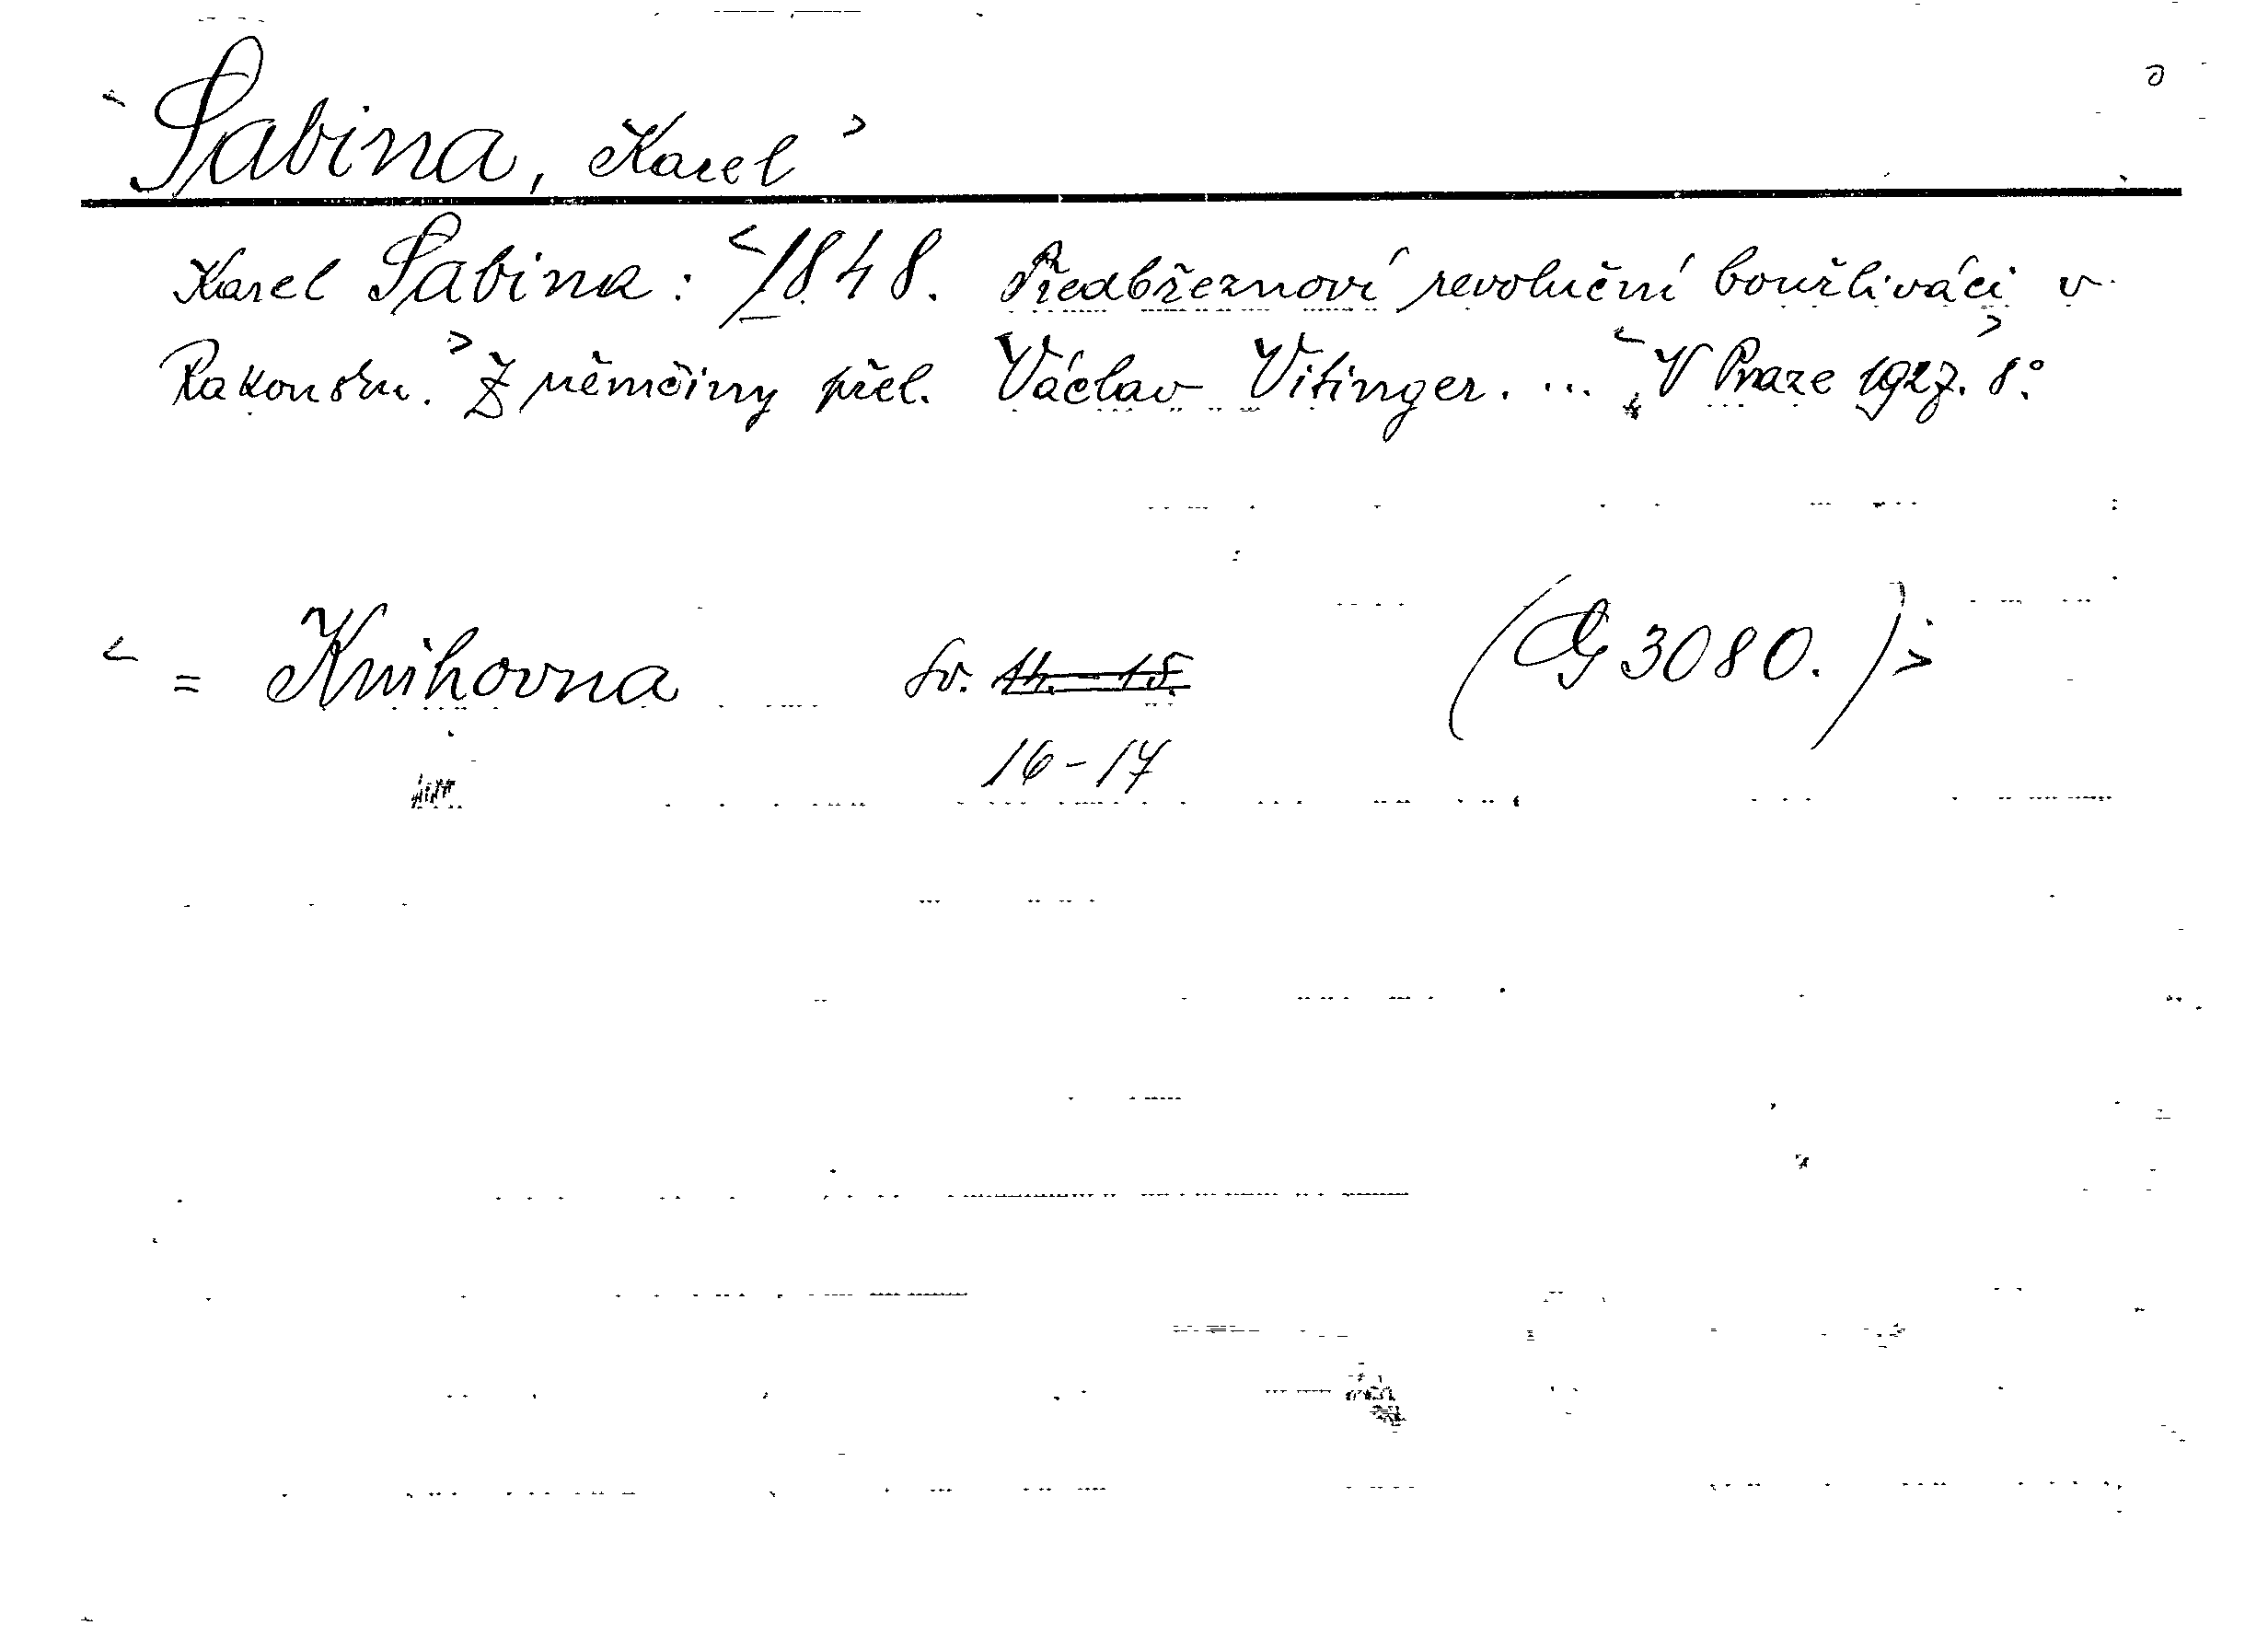 <Sabina, Karel>
Karel Sabina: <1848. Předbřeznoví revoluční bouřliváci v
Rakousku.> Z němčiny přel. Václav Vitinger. ... <V Praze 1927.> 8°.
< = Knihovna Sv. 14.-15. (G 3080.)>
16-17